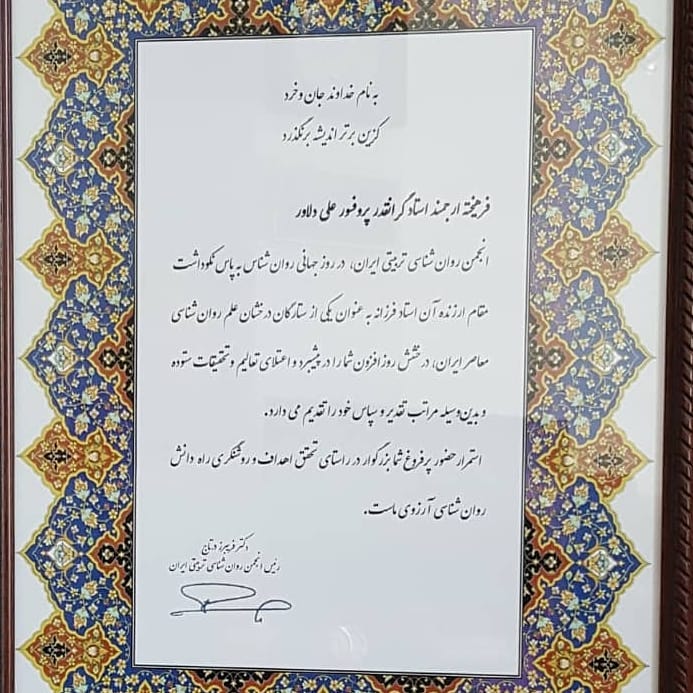 به نام خداوند جان و خرد
کزین برتر اندیشه برنگذرد
فرهیخته ارجمند استاد گرانقدر پروفسور علی دلاور
انجمن روان شناسی تربیتی ایران، در روز جهانی روان شناس به پاس نکوداشت
مقام ارزنده آن استاد فرزانه به عنوان یکی از ستارگان درخشان علم روان شناسی
معاصر ایران، درخشش روزافزون شما را در پیشبرد و اعتلای تعالیم و تحقیقات ستوده
و بدین وسیله مراتب تقدیر و سپاس خود را تقدیم می دارد.
استمرار حضور پرفروغ شما بزرگوار در راستای تحقق اهداف و روشنگری راه دانش
روان شناسی آرزوی ماست.
دکتر فریبرز درتاج
رئیس انجمن روان شناسی تربیتی ایران